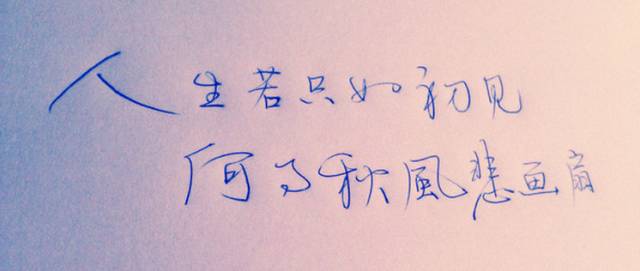 人生若只如初见
何事秋風悲画扇